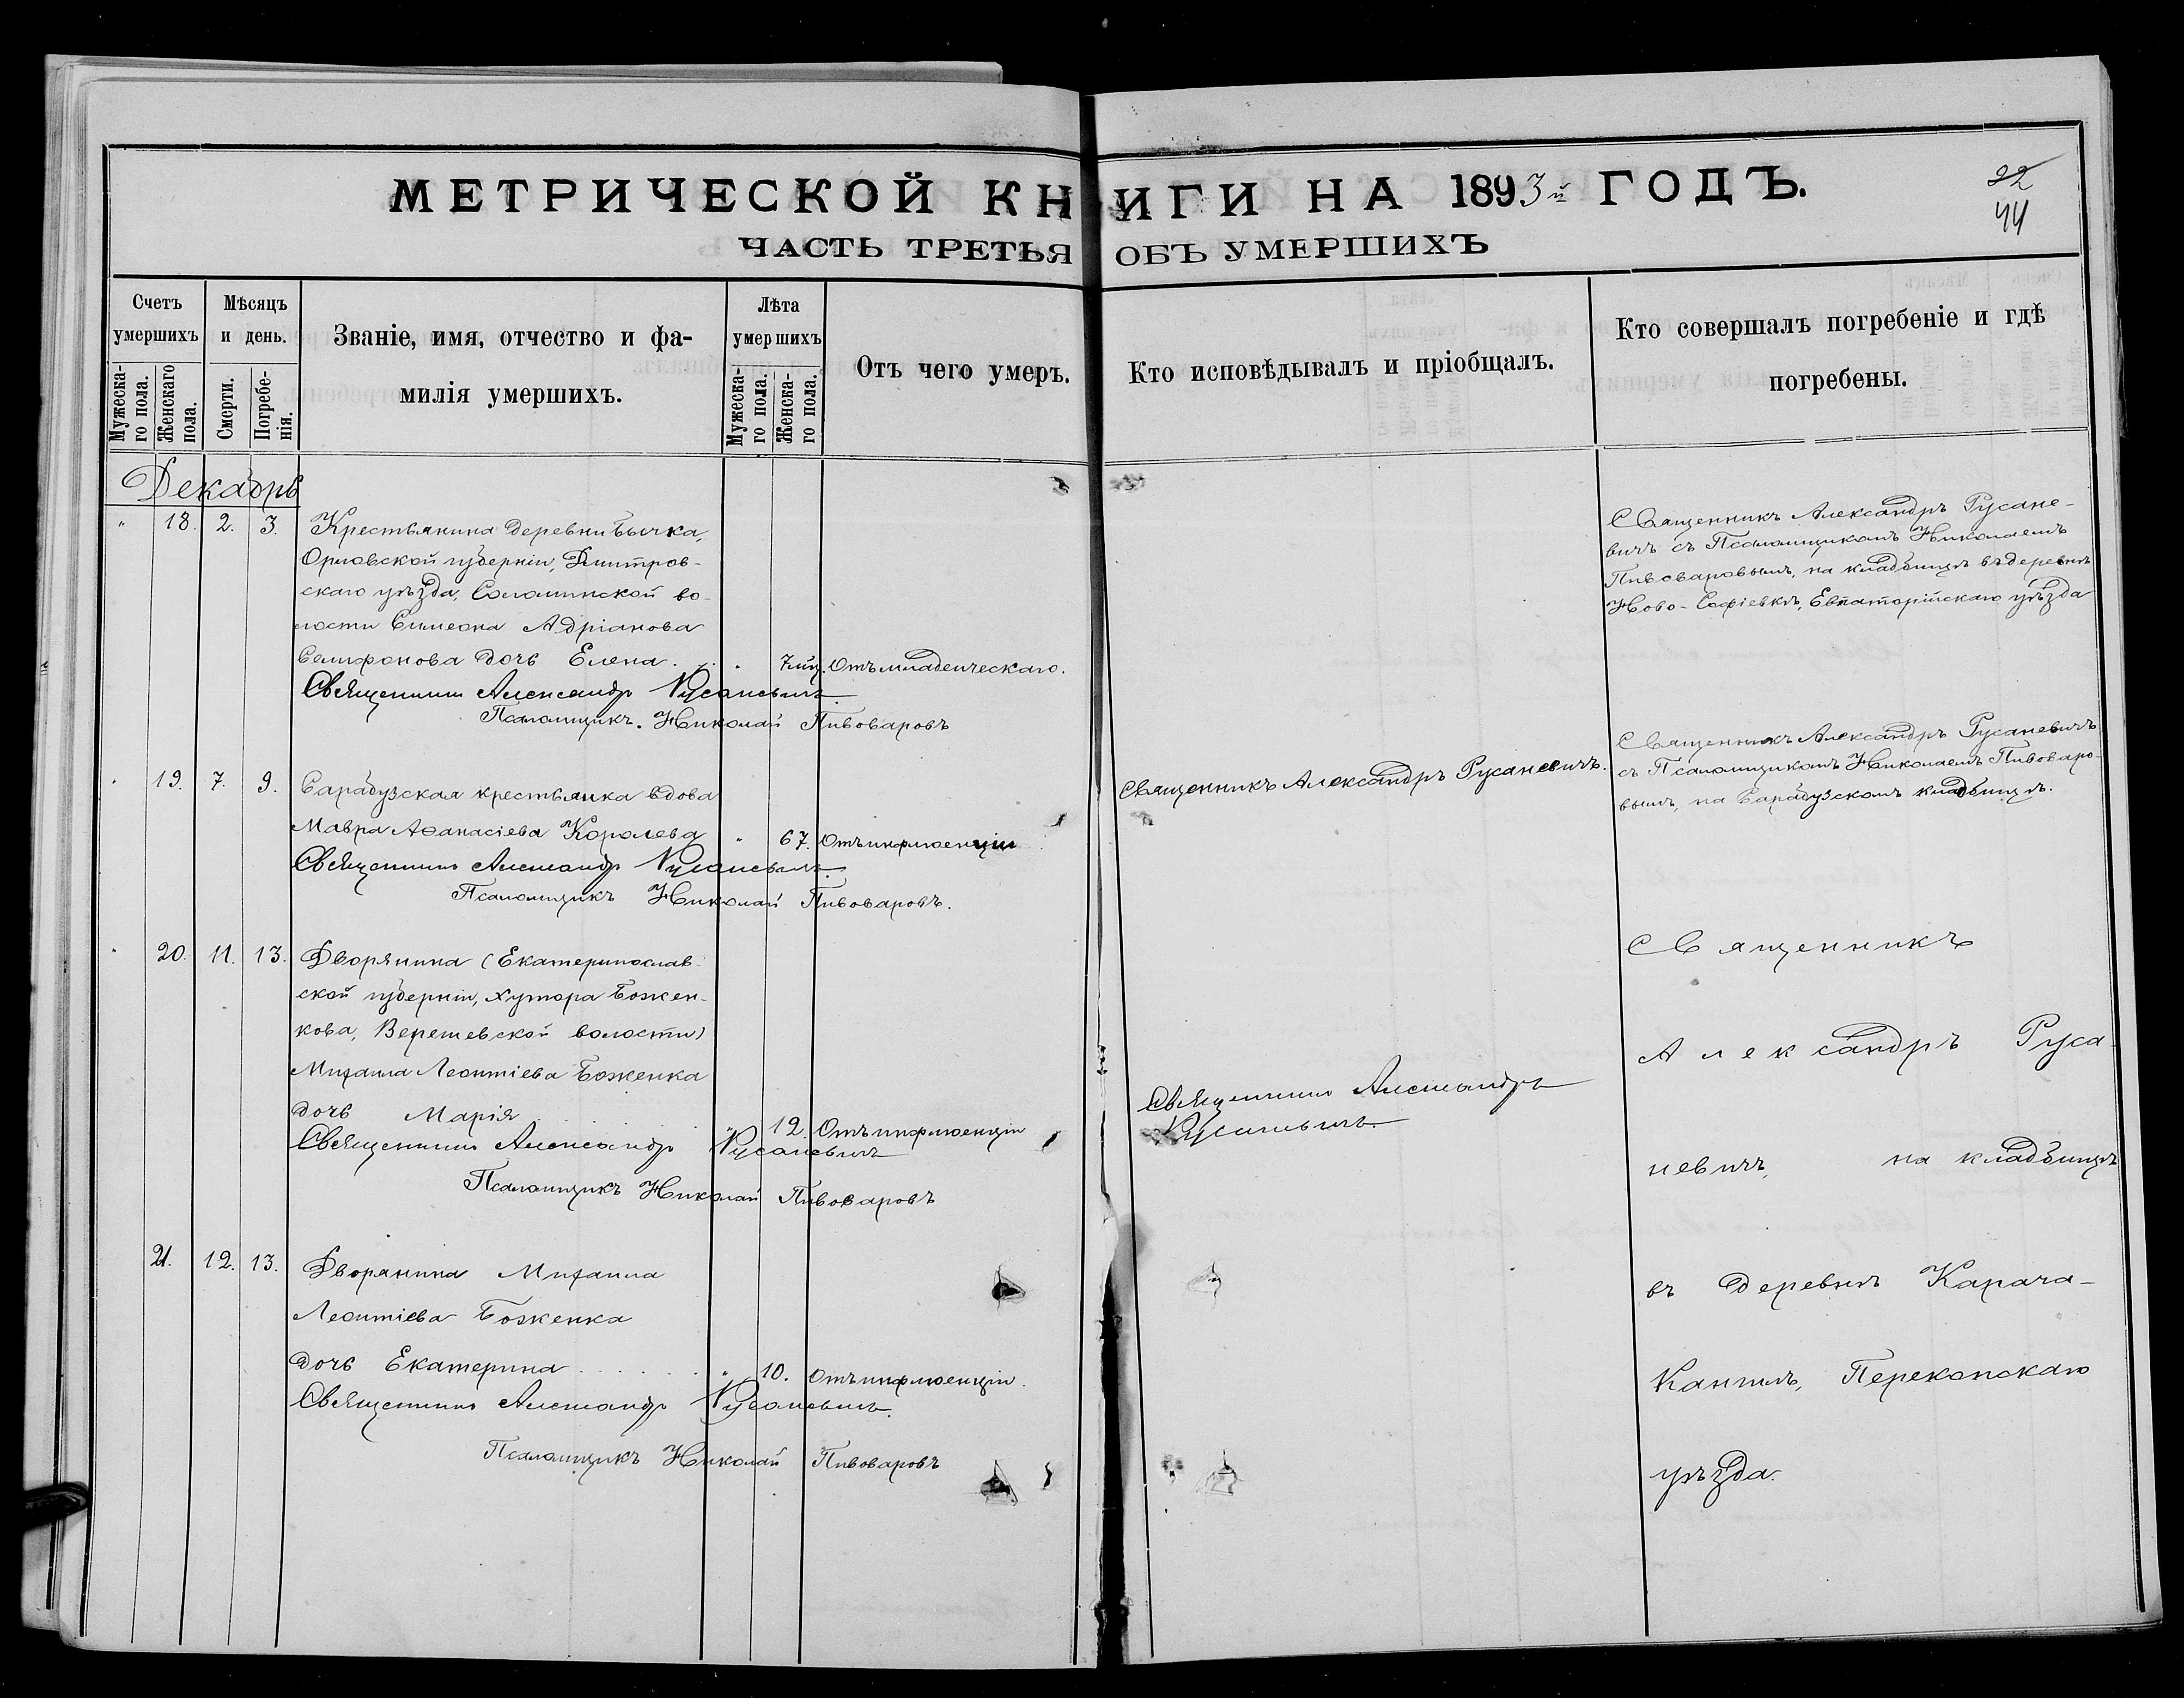 МЕТРИЧЕСКОЙ КНИГИ НА 1893й ГОДЪ.
22
44
ЧАСТЬ ТРЕТЬЯ ОБЪ УМЕРШИХЪ
Счетъ умершихъ
Мужеска-го пола.
Женскаго пола.
Мѣсяцъ и день.
Смерти.
Погребе-нія.
Званіе, имя, отчество и фа-
милія умершихъ.
Лѣта умершихъ
Мужеска-го пола.
Женска-го пола.
Отъ чего умеръ.
Кто исповѣдывалъ и пріобщалъ.
Кто совершалъ погребеніе и гдѣ
погребены.
Декабрь
" 18. 2. 3. Крестьянина деревни Бычка,
Орловской губерніи, Дмитров-
скаго уѣзда, Соломинской во-
лости Симеона Адріанова
Селифонова дочь Елена . . . " 7 мц. Отъ младенческаго.
Священникъ Александръ Русаневичъ
Псаломщикъ. Николай Пивоваровъ
Священникъ Александръ Русане-
вичъ съ Псаломщикомъ Николаемъ
Пивоваровымъ, на кладбищѣ въ деревнѣ
Ново-Софіевкѣ, Евпаторійскаго уѣзда
" 19. 7. 9. Сарабузская крестьянка вдова
Мавра Аѳанасіева Королева " 67. Отъ инфлюенціи
Священникъ Александръ Русаневичъ.
Псаломщикъ Николай Пивоваровъ.
Священникъ Александръ Русаневичъ.
Священникъ Александръ Русаневичъ
съ Псаломщикомъ Николаемъ Пивоваро-
вымъ, на Сарабузскомъ кладбищѣ.
" 20. 11. 13. Дворянина (Екатеринослав-
ской губерніи, хутора Божен-
кова, Верешевской волости)
Михаила Леонтіева Боженка
дочь Марія . . . " 12. Отъ инфлюенціи
Священникъ Александръ Русаневичъ
Псаломщикъ Николай Пивоваровъ
Священникъ Александръ
Русаневичъ.
21. 12. 13. Дворянина Михаила
Леонтіева Боженка
дочь Екатерина . . . . . . " 10. Отъ инфлюенціи.
Священникъ Александръ Русаневичъ.
Псаломщикъ Николай Пивоваровъ
Священникъ
Александръ Руса-
невичъ, на кладбищѣ
въ деревнѣ Карача-
Кангилъ, Перекопскаго
уѣзда.